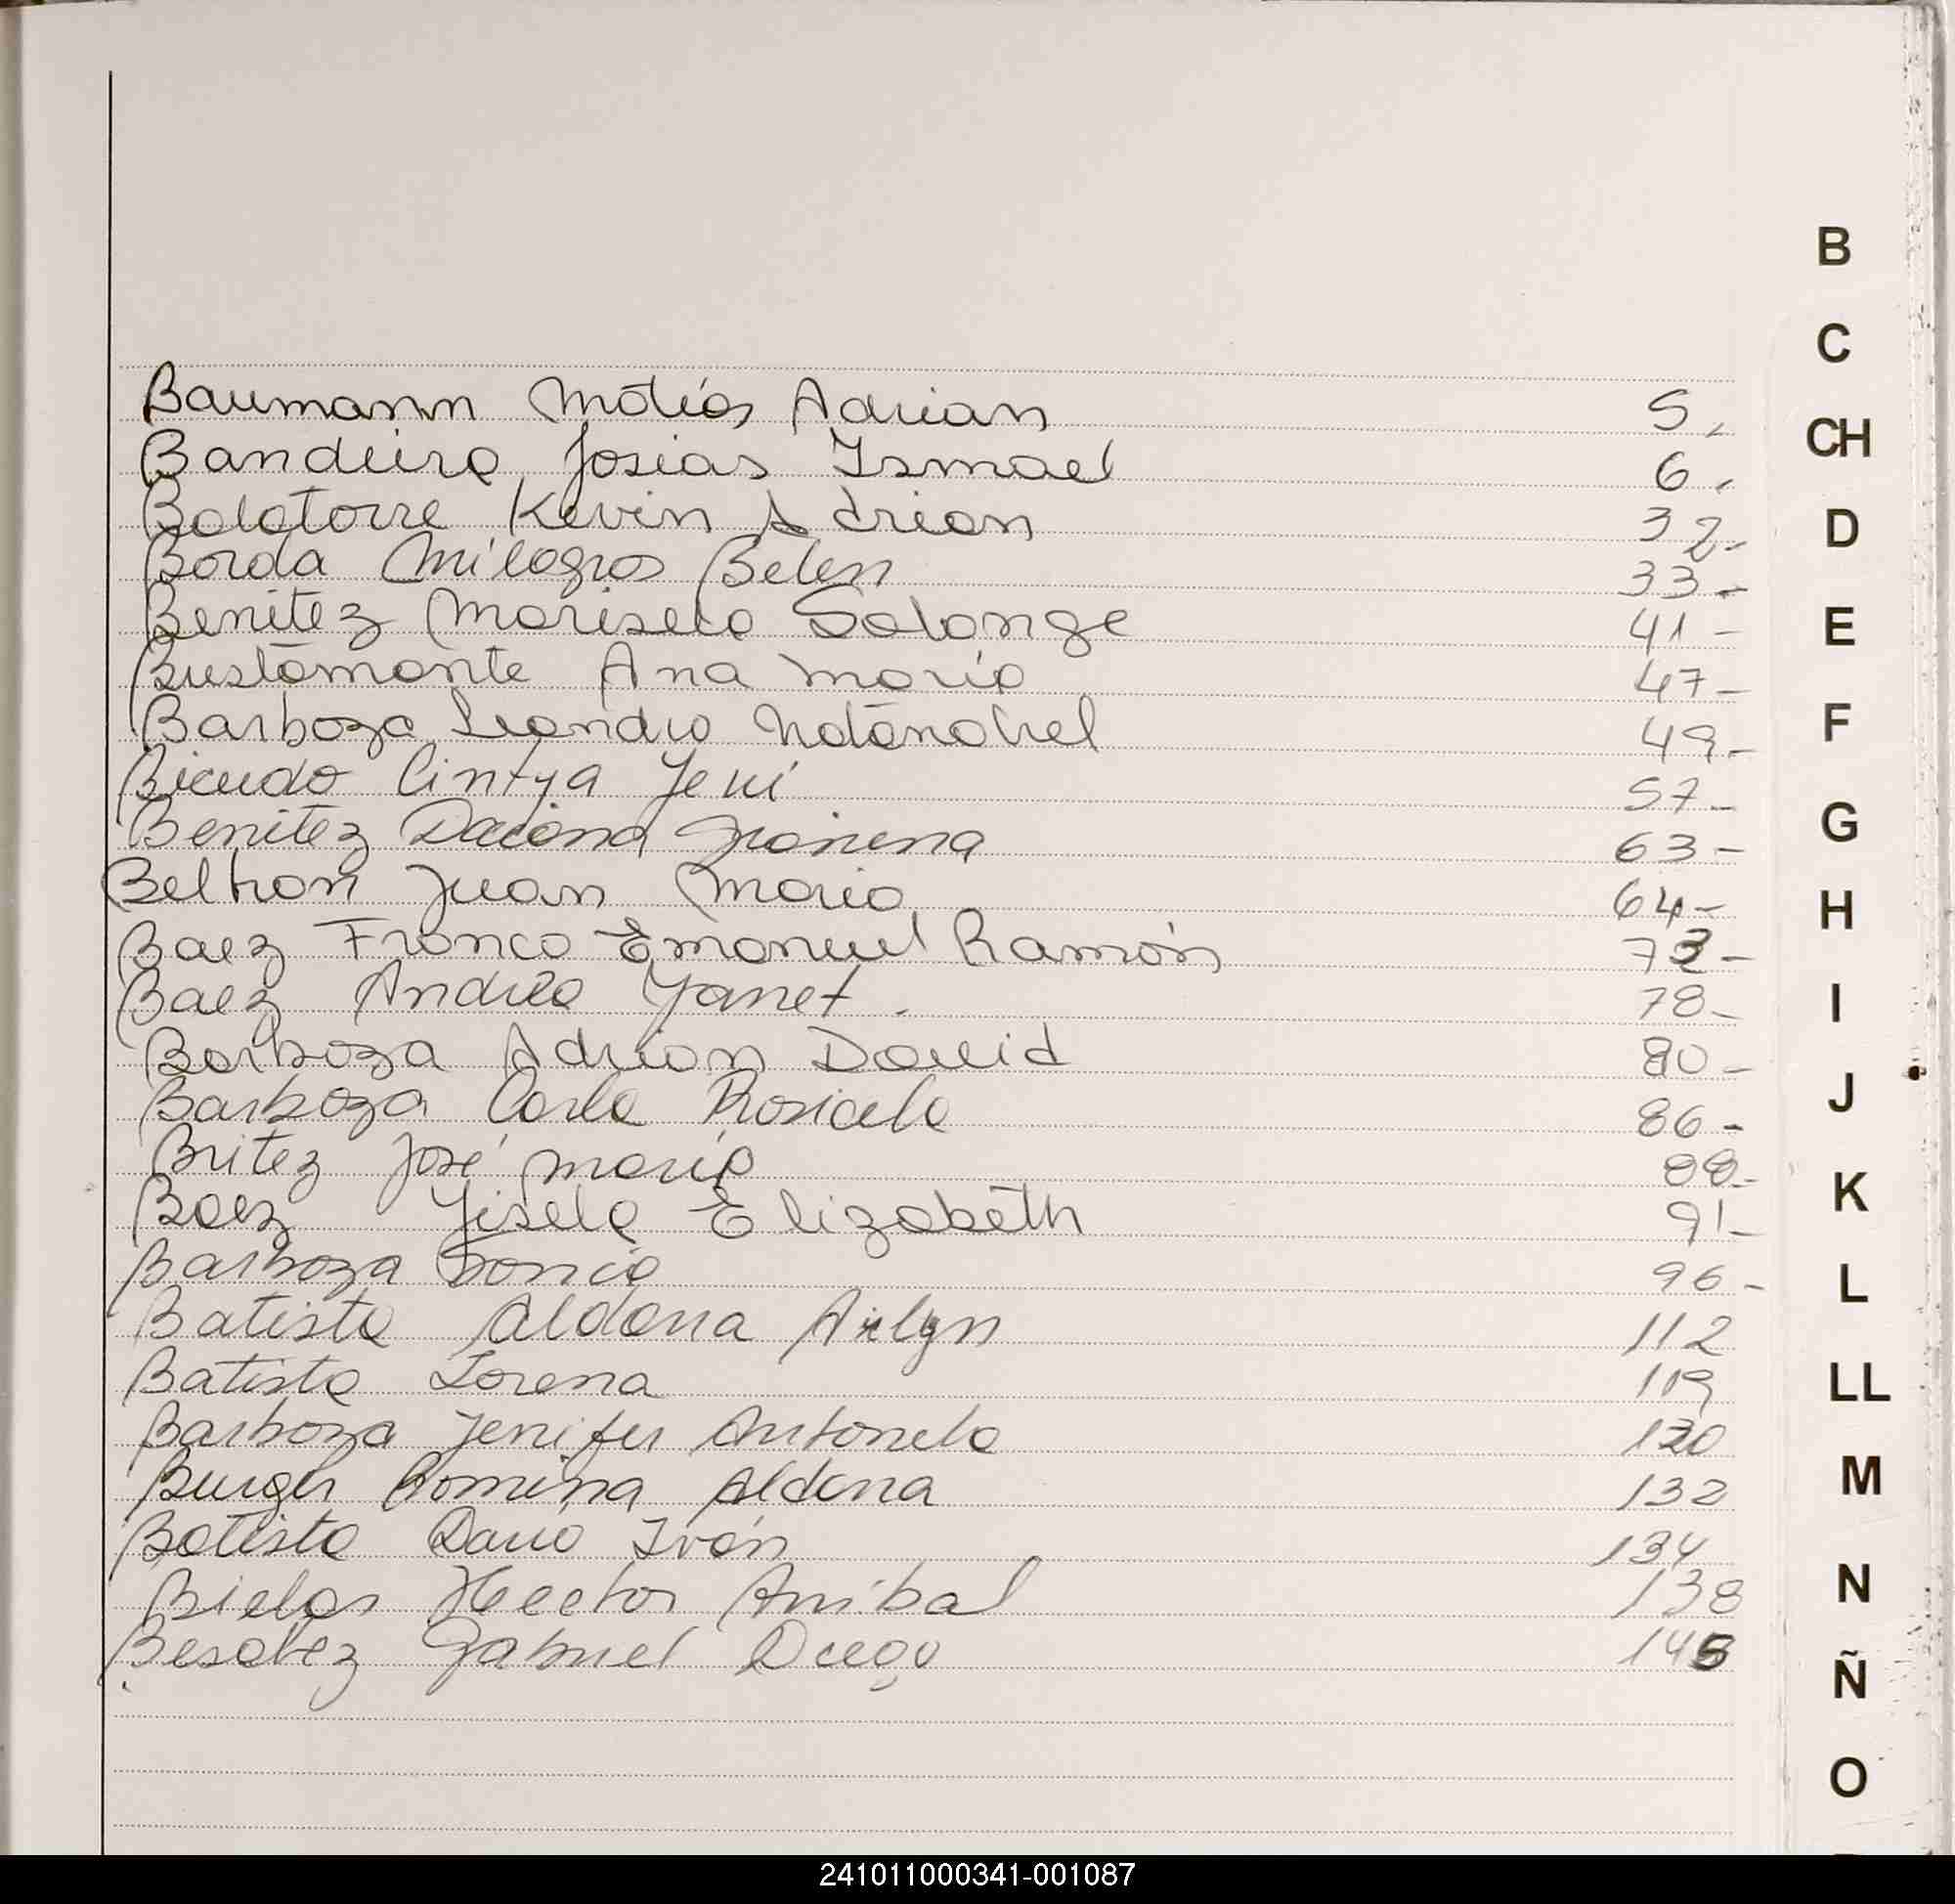 Baumann Matías Adrian 5
Bandeira Josias Ismael 6
Balatorre Kevin Adrian 32
Borda Milagros Belen 33
Benitez Marisela Solange 41
Bustamante Ana Maria 47
Barboza Leandro Natanahel 49
Bicudo Cintya Jeni 57
Benitez Daiana 63
Beltran Juan Mario 64
Baez Franco Emanuel Ramón 73
Baez Andrea Yanet 78
Barboza Adrian David 80
Barboza Carla Rosicela 86
Britez José María 88
Baez Yisela Elizabeth 91
Barboza Sonia 96
Batista Aldana Ailyn 112
Batista Lorena 119
Barboza Jenifer Antonela 120
Burger Romina Aldana 132
Batista Dario Iván 134
Bielas Hector Anibal 138
Gabriel Diego 145
B
C
CH
D
E
F
G
H
I
J
K
L
LL
M
N
Ñ
O
241011000341-001087